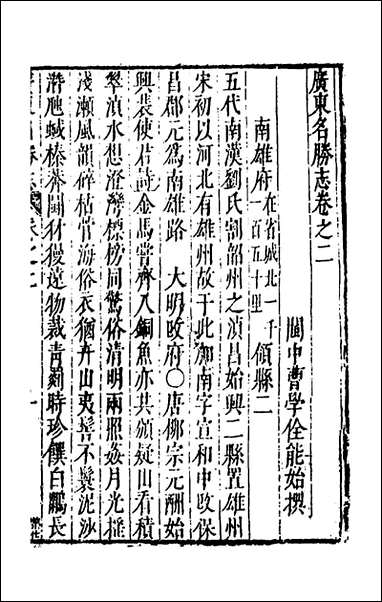 廣東名勝志卷之二
閩中曹學佺能始撰
南雄府在省城北一千一百五十里領縣二
五代南漢劉氏割韶州之滇昌始興二縣置雄州
宋初以河北有雄州故于此加南字宣和中改保
昌郡元爲南雄路　大明改府〇唐柳宗元酬始
興裴使君詩金馬嘗齊入銅魚亦共頒疑山看積
翠滇水想澄灣標榜同驚俗清明兩照姦月光揺
淺瀬風韻碎枯菅海俗衣猶卉山夷髻不鬟泥沙
潛虺蜮榛莽鬪豺獌遠物裁青罽時珍饌白鷳長